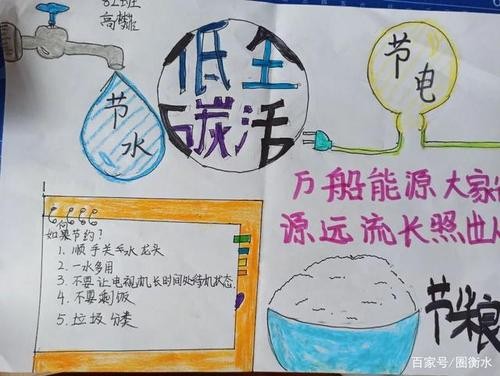 82班
低全
碳活
节水
节电
万船能源大家
源远流长照出
如何节约?
1. 顺手关水龙头
2. 一水多用
3. 不要让电视机长时间处待机状态
4. 不要剩饭
5. 垃圾分类
节粮
百家号/圈衡水